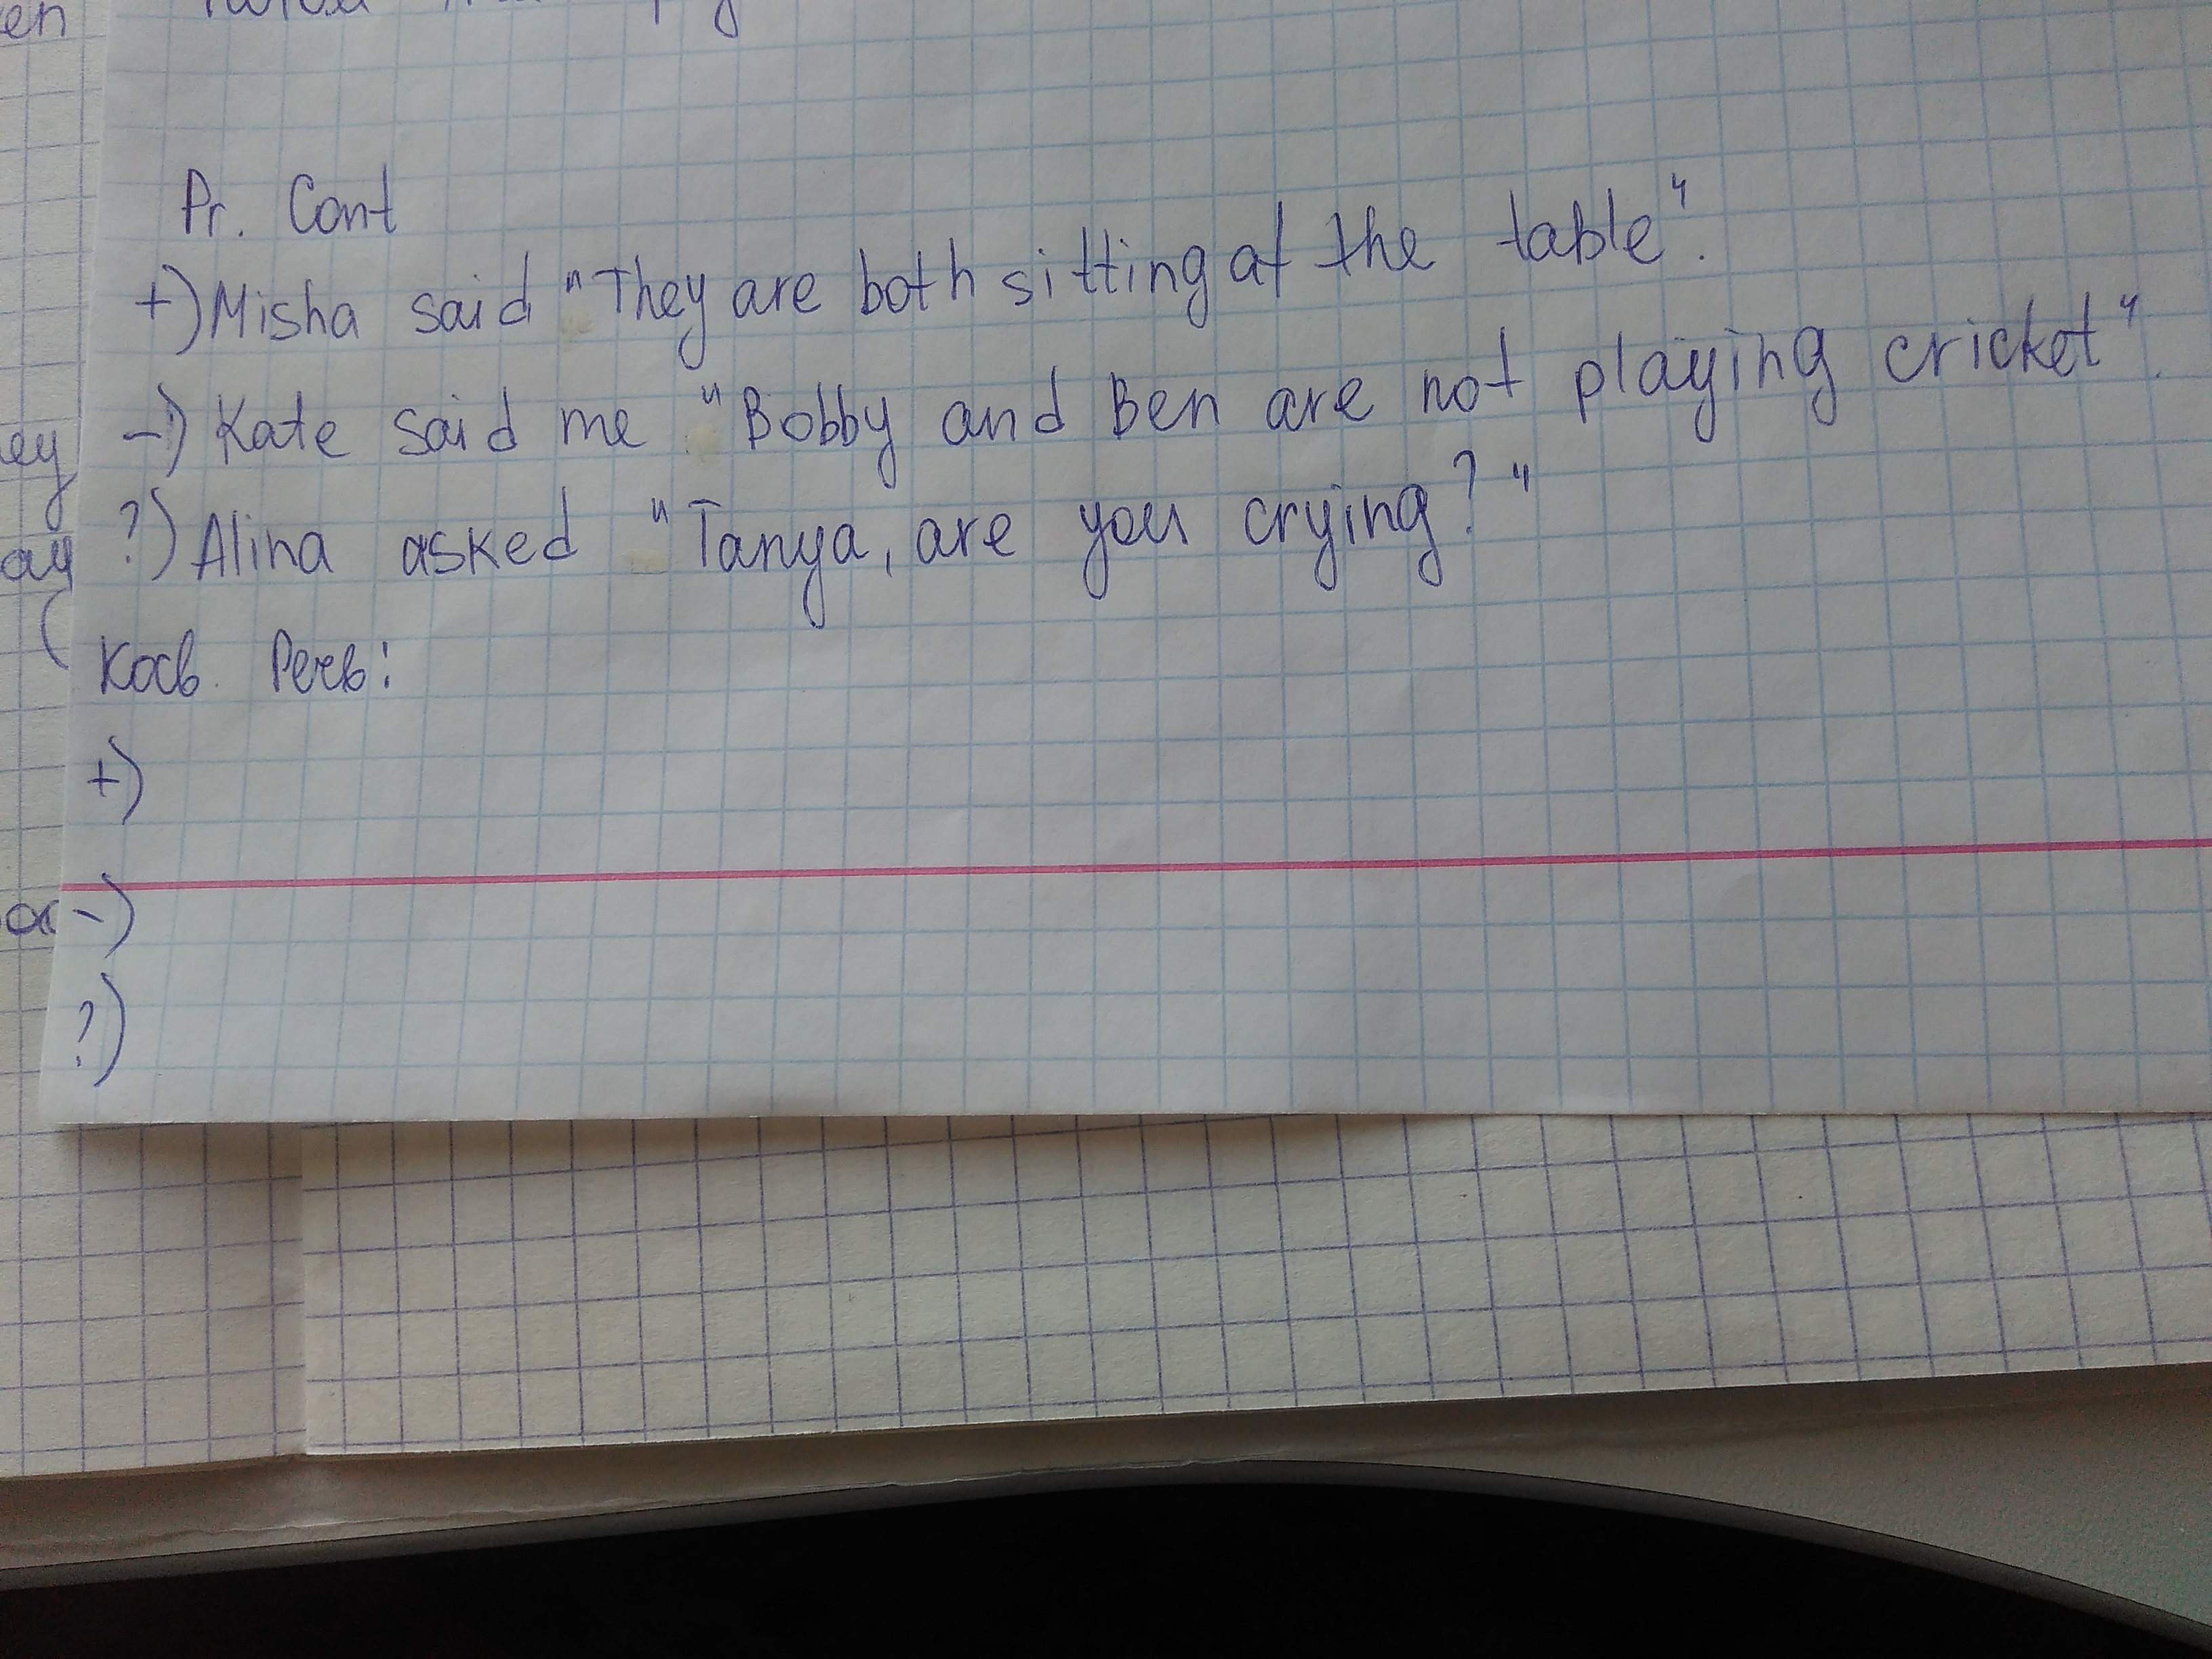 Pr. Cont
+) Misha said "They are both sitting at the table".
-) Kate said me "Bobby and Ben are not playing cricket".
?) Alina asked "Tanya, are you crying?"
Косв. Речь:
+)
-)
?)